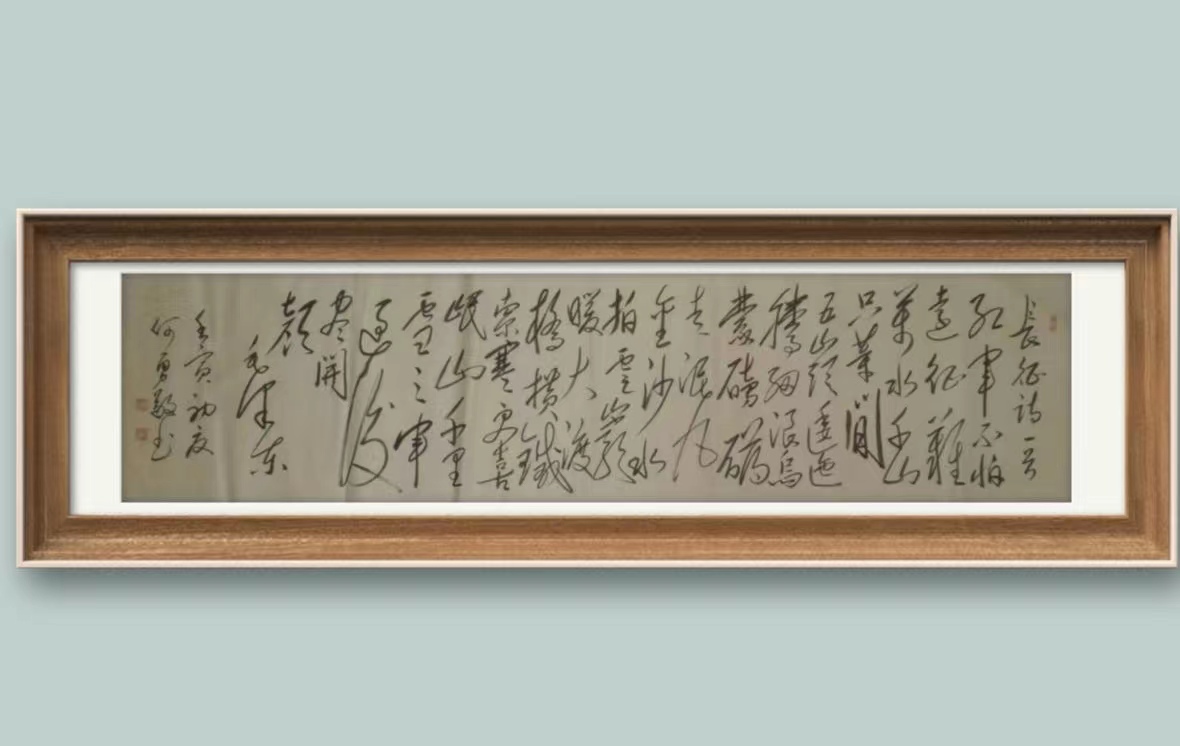 长征诗一首
红軍不怕
遠征難
萬水千山
只等閒
五嶺逶迤
腾細浪烏
蒙磅礴
走泥丸
金沙水
拍雲崖
暖大渡
橋横鐵
索寒更喜
岷山千里
雪三軍
過後
盡開
颜
毛泽东
壬寅初夏
何勇敢书